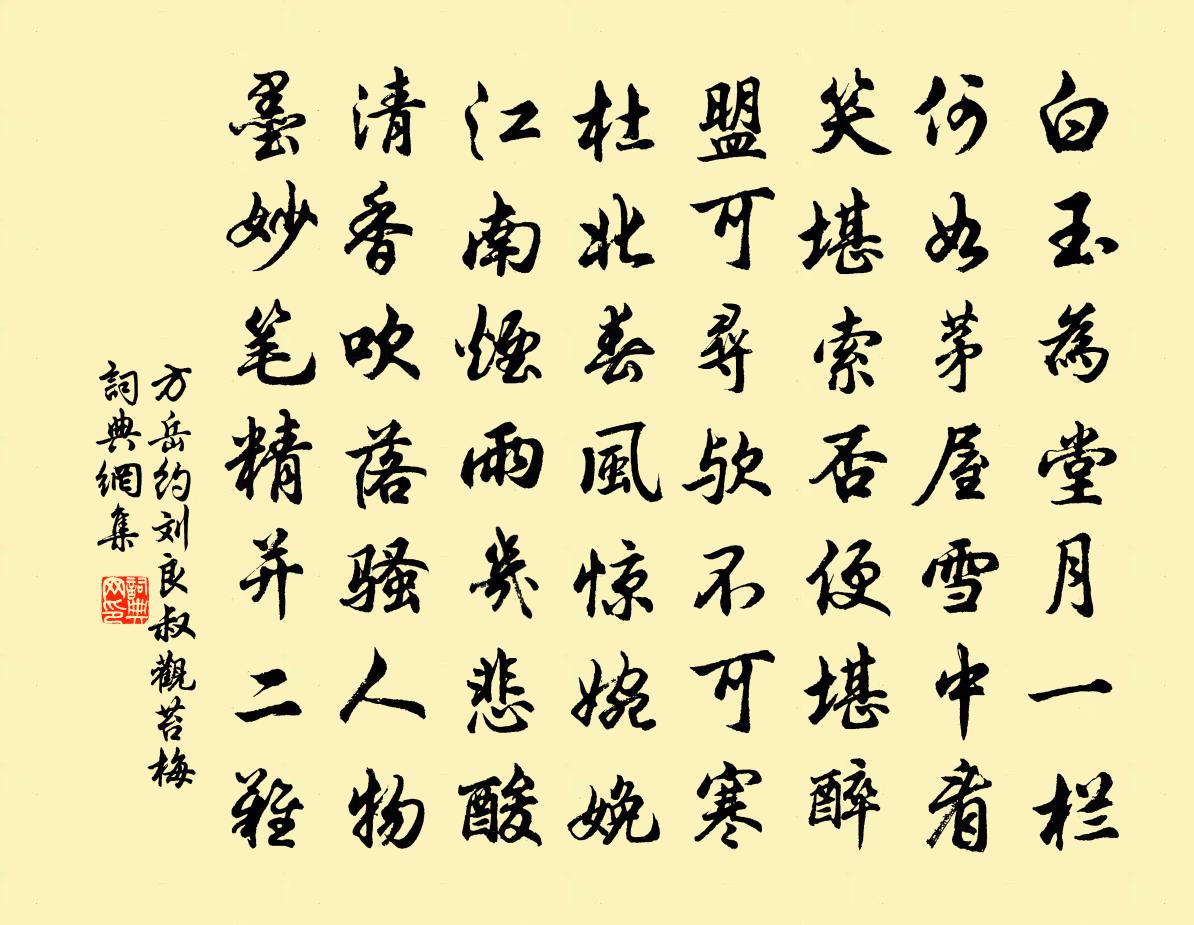 白玉為堂月一栏
何如茅屋雪中看
笑堪索否便堪醉
盟可尋欤不可寒
杜北春風惊婉娩
江南煙雨幾悲酸
清香吹落骚人物
墨妙笔精并二難
方岳约刘良叔觀苔梅
詞典網集
詞典网印